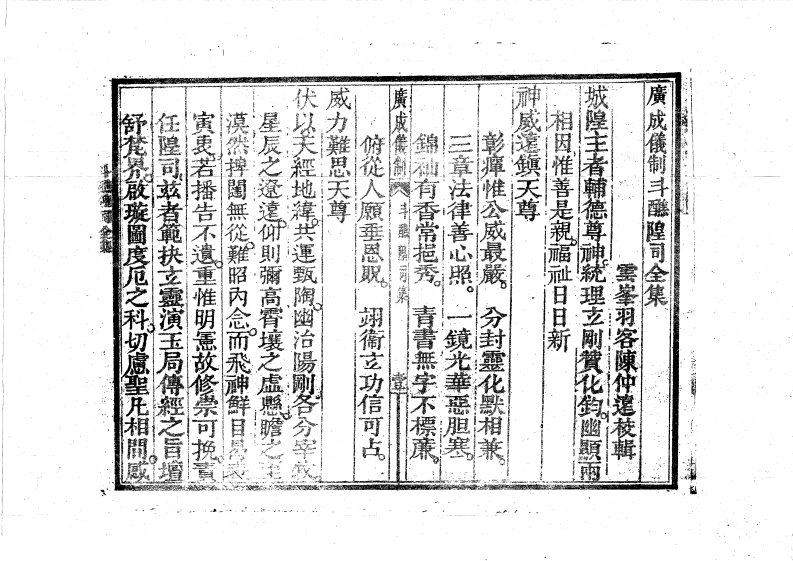 廣成儀制斗醮隍司全集
雲峯羽客陳仲遠校輯
城隍主者輔德尊神統理玄剛贊化鈞。幽顯兩
相因惟善是親。福祉日日新
神威遠鎮天尊
彰癉惟公威最嚴。 分封靈化默相兼。
三章法律善心照。 一鏡光華惡胆寒。
錦袖有香常挹秀。 青書無字不標蔗。
廣成儀制 斗醮隍司集 壹
俯從人願垂恩貺。 翊衛玄功信可占。
威力難思天尊
伏以天經地緯。共運甄陶。幽治陽剛。各分宰
星辰之遼遠。仰則彌高霄壤之虛懸瞻之
漠然捭闔無從。難昭內念。而飛神鮮目
寅衷。若播告不遺。重惟明憲故修崇可挽責
任隍司。玆者範抉玄靈演玉局傳經之旨壇
舒梵界。啟璇圖度厄之科。切慮聖凡相間。感